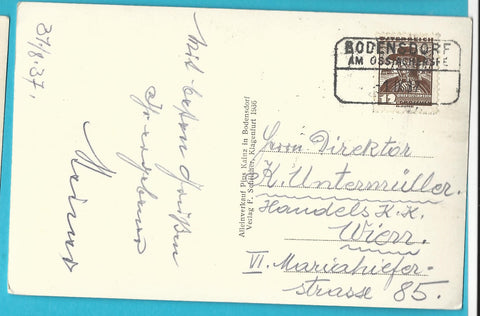 31/8.37.
Mit besten Grüßen
Heimo
Alleinverkauf Pius Kahrz in Bodensdorf
Verlag F. Schilcher, Klagenfurt 1936
ÖSTERREICH
12
BODENSDORF
AM OSSIACHERSEE
Herrn Direktor
K. Untermüller.
Handels K.K.
Wien.
VI. Mariahilfer-
strasse 85.